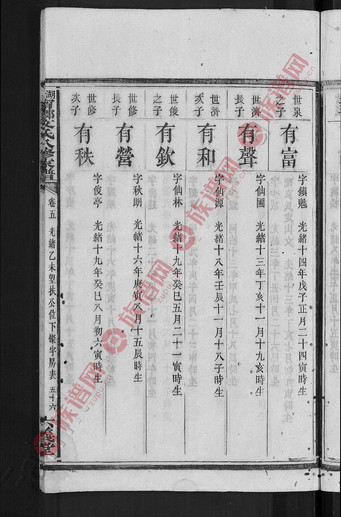 世泉之子
有富
字鎮魁 光緒十四年戊子正月二十四寅時生
世濟長子
有聲
字仙圃 光緒十三年丁亥十一月十九亥時生
世濟次子
有和
字仙源 光緒十八年壬辰十一月十八子時生
世俊之子
有欽
字仙林 光緒十九年癸巳五月二十一寅時生
世修長子
有營
字秋期 光緒十六年庚寅八月十五辰時生
世修次子
有秩
字俊亭 光緒十九年癸巳八月初六寅時生
卷五 光緒乙未望扶公位下燦字房表 五十六
族谱网